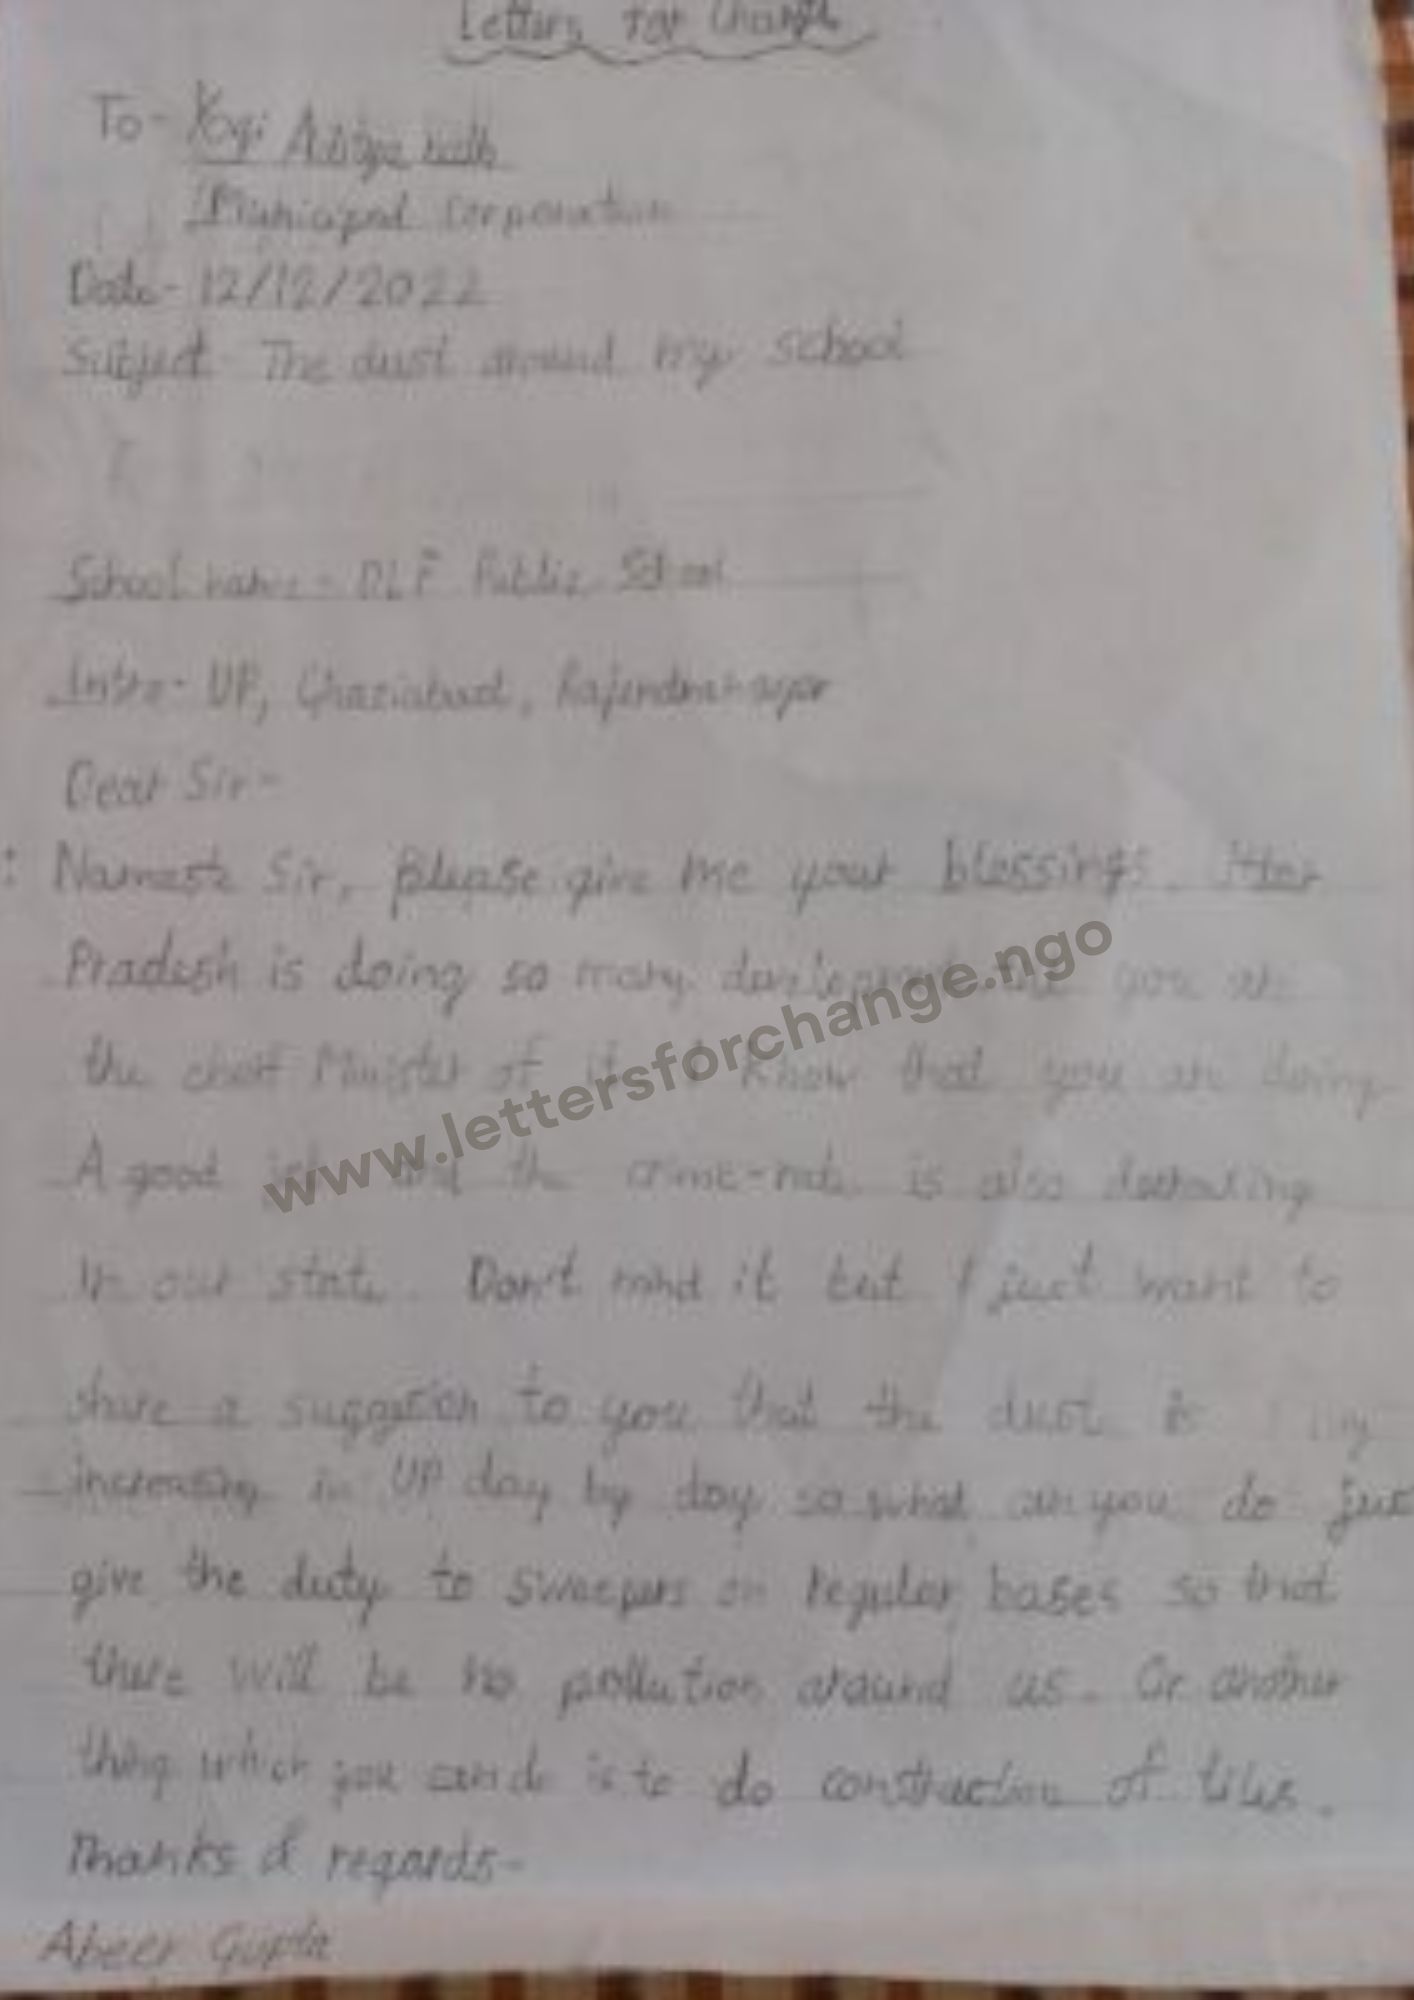 Letters for Change
To- Yogi Aditya nath
Municipal corporation
Date- 12/12/2022
Subject- The dust around my school
School name - DLF Public School
Intro- UP, Ghaziabad, Rajendra nagar
Dear Sir-
Namaste Sir, please give me your blessings. Utter
Pradesh is doing so many development and you are
the chief Minister of it. I know that you are doing
A good job and the crime-rate is also decreasing
in our state. Don't mind it but I just want to
share a suggestion to you that the dust is
increasing in UP day by day so what can you do just
give the duty to sweepers on regular bases so that
there will be no pollution around us. Or another
thing which you can do is to do construction of tiles.
Thanks & regards-
Abeer Gupta
www.lettersforchange.ngo